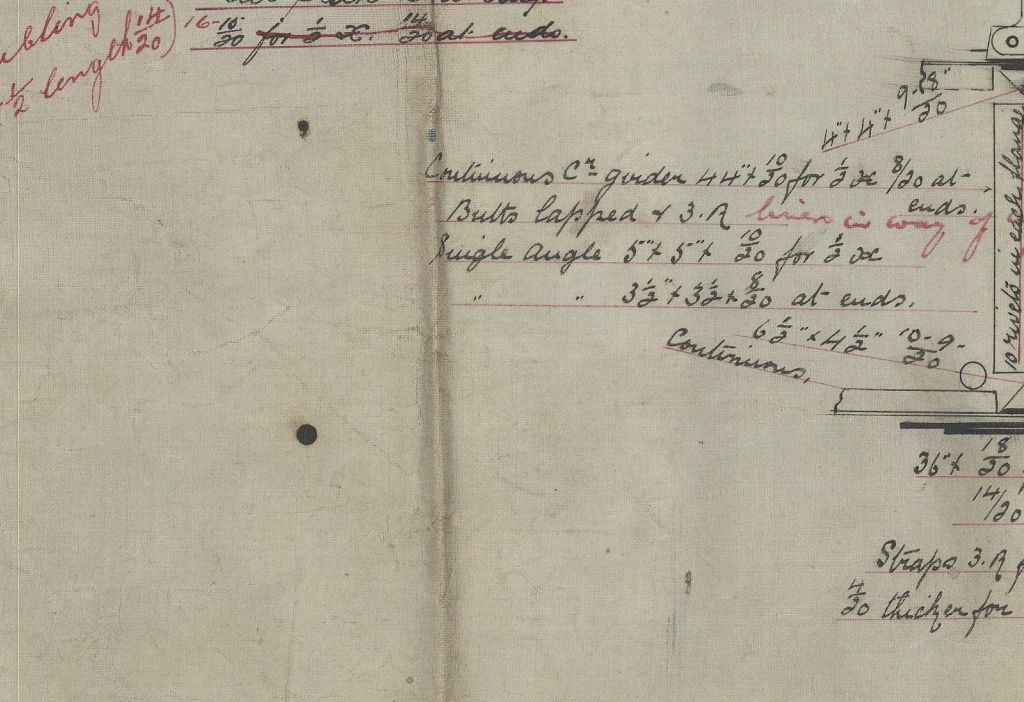 bling
½ length 14/20)
16-15/20 for ½ x. 14/20 at ends.
9-8"/20
4" x 4" x
Continuous Cr girder 44" x 10/20 for ½ x 8/20 at
ends.
Butts lapped & 3.R liner in way of
Single angle 5" x 5" x 10/20 for ½ x
" " 3½" x 3½ x 8/20 at ends.
6½" x 4½" 10-9-/20
Continuous,
10 rivets in each flange
36" x 18/20
14/20
Straps 3.R
4/20 thicker for